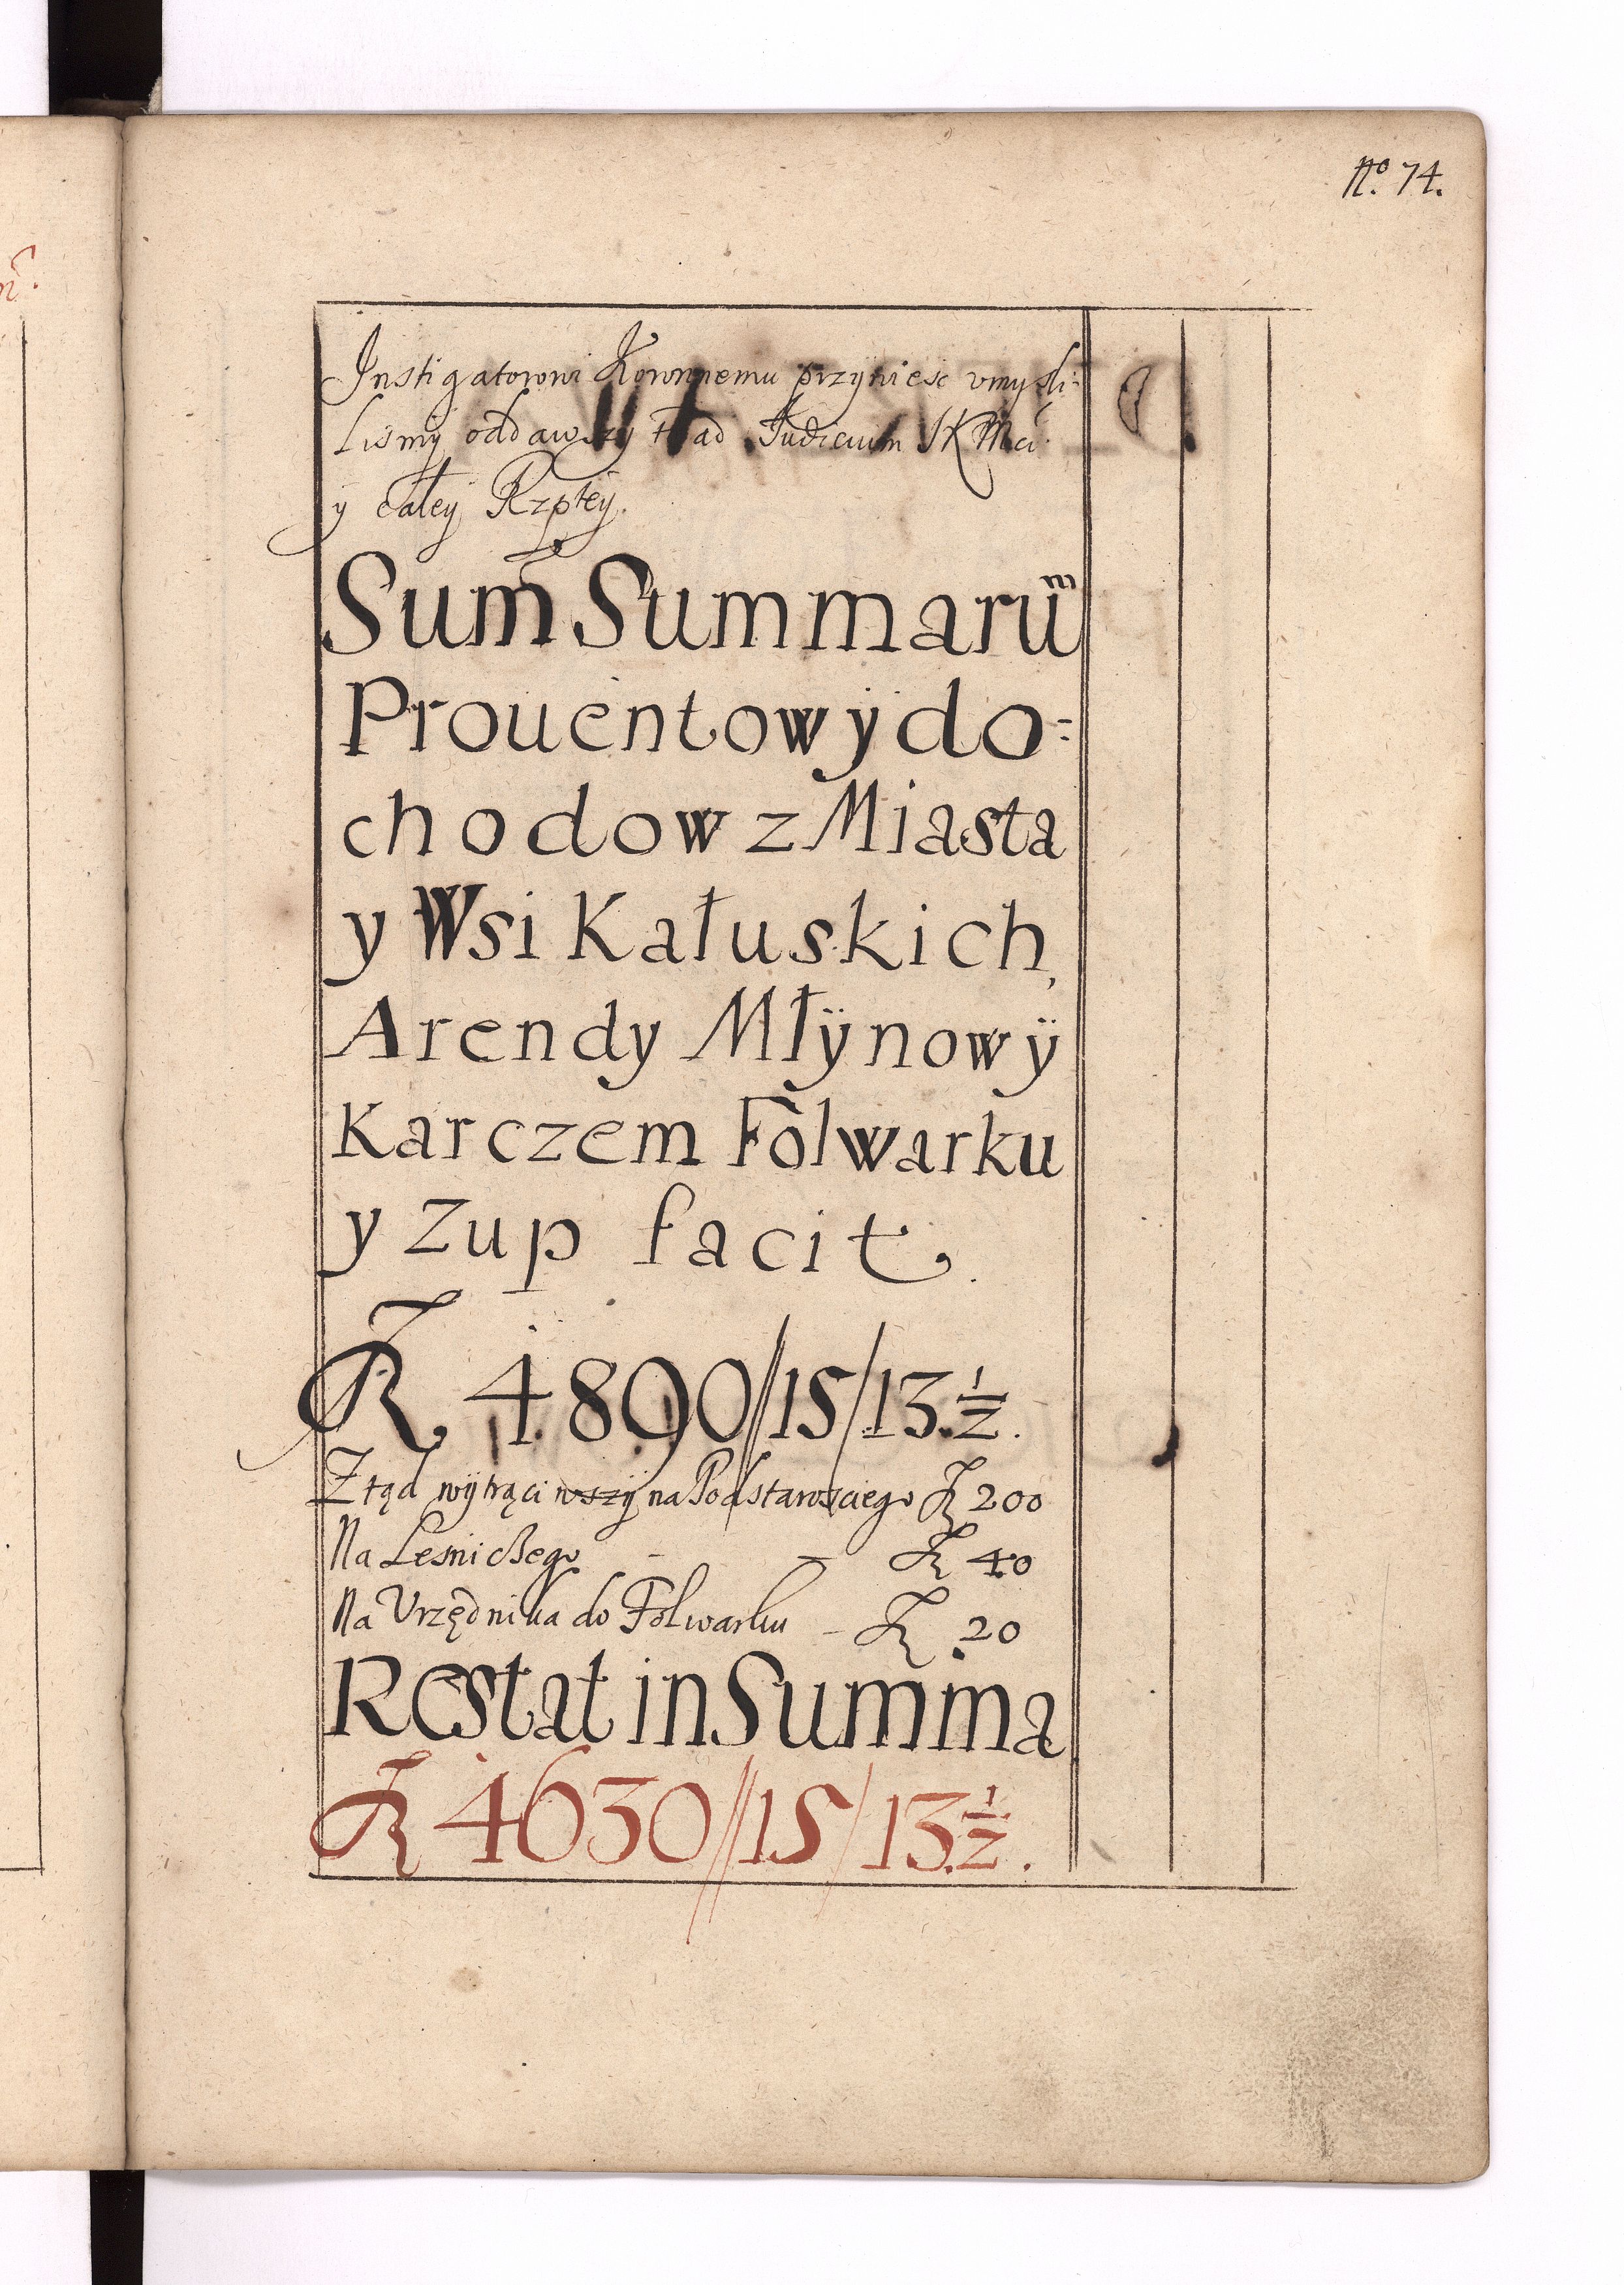 No. 74.
Instigatorowi Koronnemu przynieść vmyśli-
Lismy oddawszy to ad Judicium JKMći
y całey Rzptey.
Sum̃ Summarum
Prouentow y do=
chodow z Miasta
y Wsi Kałuskich,
Arendy Młÿnow ÿ
Karczem Folwarku
y Zup facit.
fl 4890//15/13.1/2.
Ztąd wytrąciwszy na Podstarosciego fl 200
Na Lesniczego - - fl 40
Na Vrzędnika do Folwarku - fl 20
Restat in Summa
fl 4630//15/13.1/2.